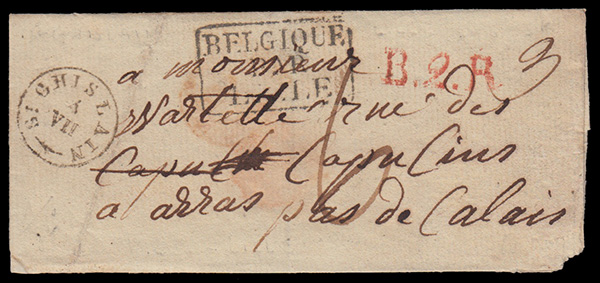 BELGIQUE
LILLE
B.2.R
3
a monsieur
Wartelle rue des
Capucins
a arras pas de Calais
6
St GHISLAIN
VII